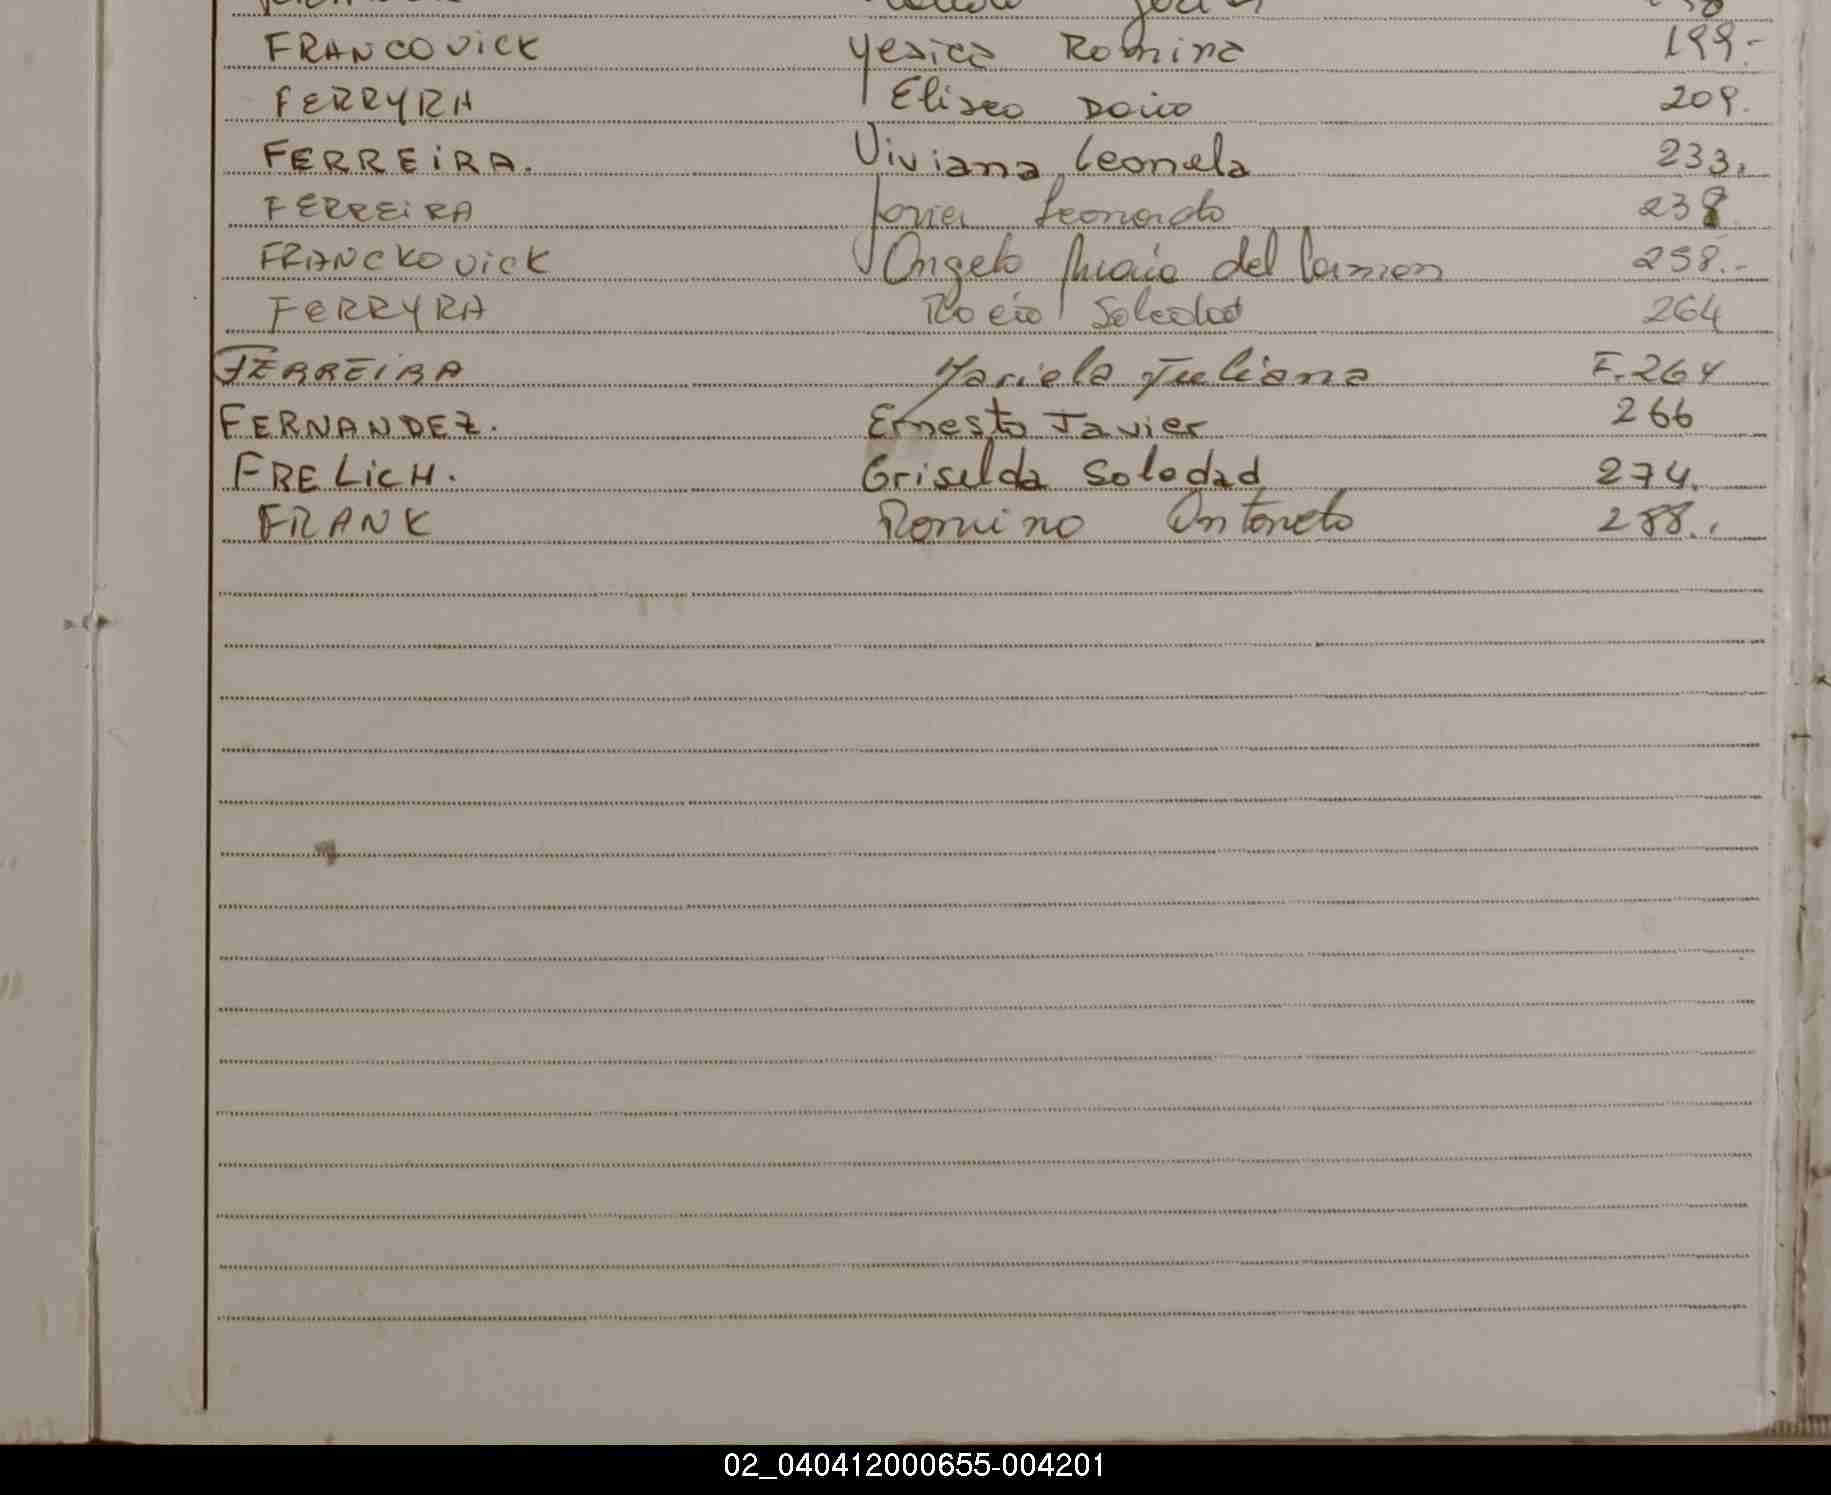 FRANCOVICK Yesica Romina 199.-
FERRYRA Eliseo Dario 209.
FERREIRA. Viviana Leonela 233.
FERREIRA Javier Leonardo 238
FRANCKOVICK Angela María del Carmen 258.-
FERRYRA Rocío Soledad 264
FERREIRA Mariela Juliana F.264
FERNANDEZ. Ernesto Javier 266
FRELICH. Griselda Soledad 274.
FRANK Romina Antonela 288..
02_040412000655-004201